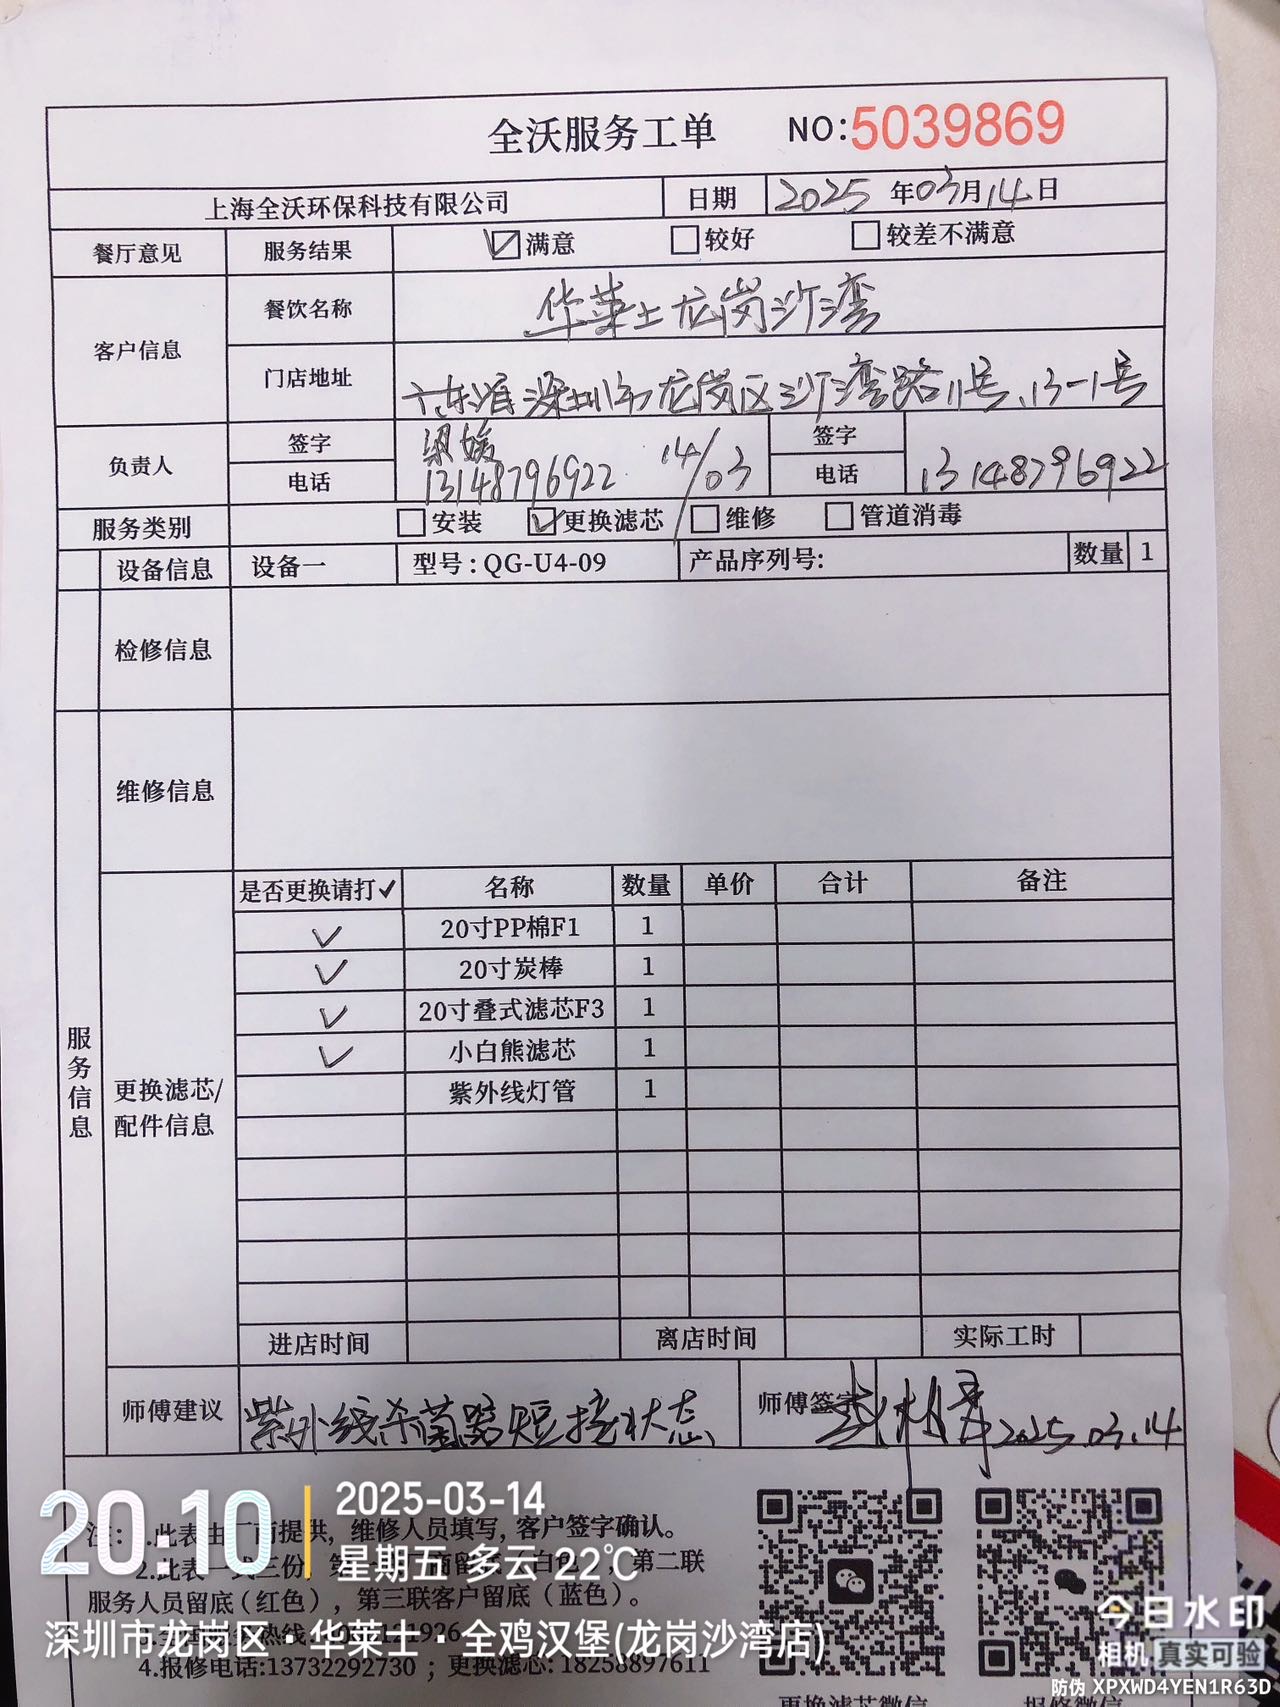 全沃服务工单 NO:5039869
上海全沃环保科技有限公司 日期 2025年03月14日
餐厅意见 服务结果 满意 较好 较差不满意
客户信息 餐饮名称 华莱士龙岗沙湾
门店地址 广东省深圳市龙岗区沙湾路11号、13-1号
负责人 签字 梁媛 14/03 签字
电话 13148796922 电话 13148796922
服务类别 安装 更换滤芯 维修 管道消毒
设备信息 设备一 型号:QG-U4-09 产品序列号: 数量 1
检修信息
维修信息
服务信息
更换滤芯/
配件信息
是否更换请打✓ 名称 数量 单价 合计 备注
✓ 20寸PP棉F1 1
✓ 20寸炭棒 1
✓ 20寸叠式滤芯F3 1
✓ 小白熊滤芯 1
紫外线灯管 1
进店时间 离店时间 实际工时
师傅建议 紫外线杀菌器短接状态 师傅签字 2025.03.14
注: 1.此表由厂商提供, 维修人员填写, 客户签字确认。
2.此表一式三份, 第二联
服务人员留底(红色), 第三联客户留底(蓝色)。
4.报修电话:13732292730 ; 更换滤芯: 18258897611
更换滤芯微信 报修微信
20:10
2025-03-14
星期五 多云 22℃
深圳市龙岗区·华莱士·全鸡汉堡(龙岗沙湾店)
今日水印
相机 真实可验
防伪 XPXWD4YEN1R63D